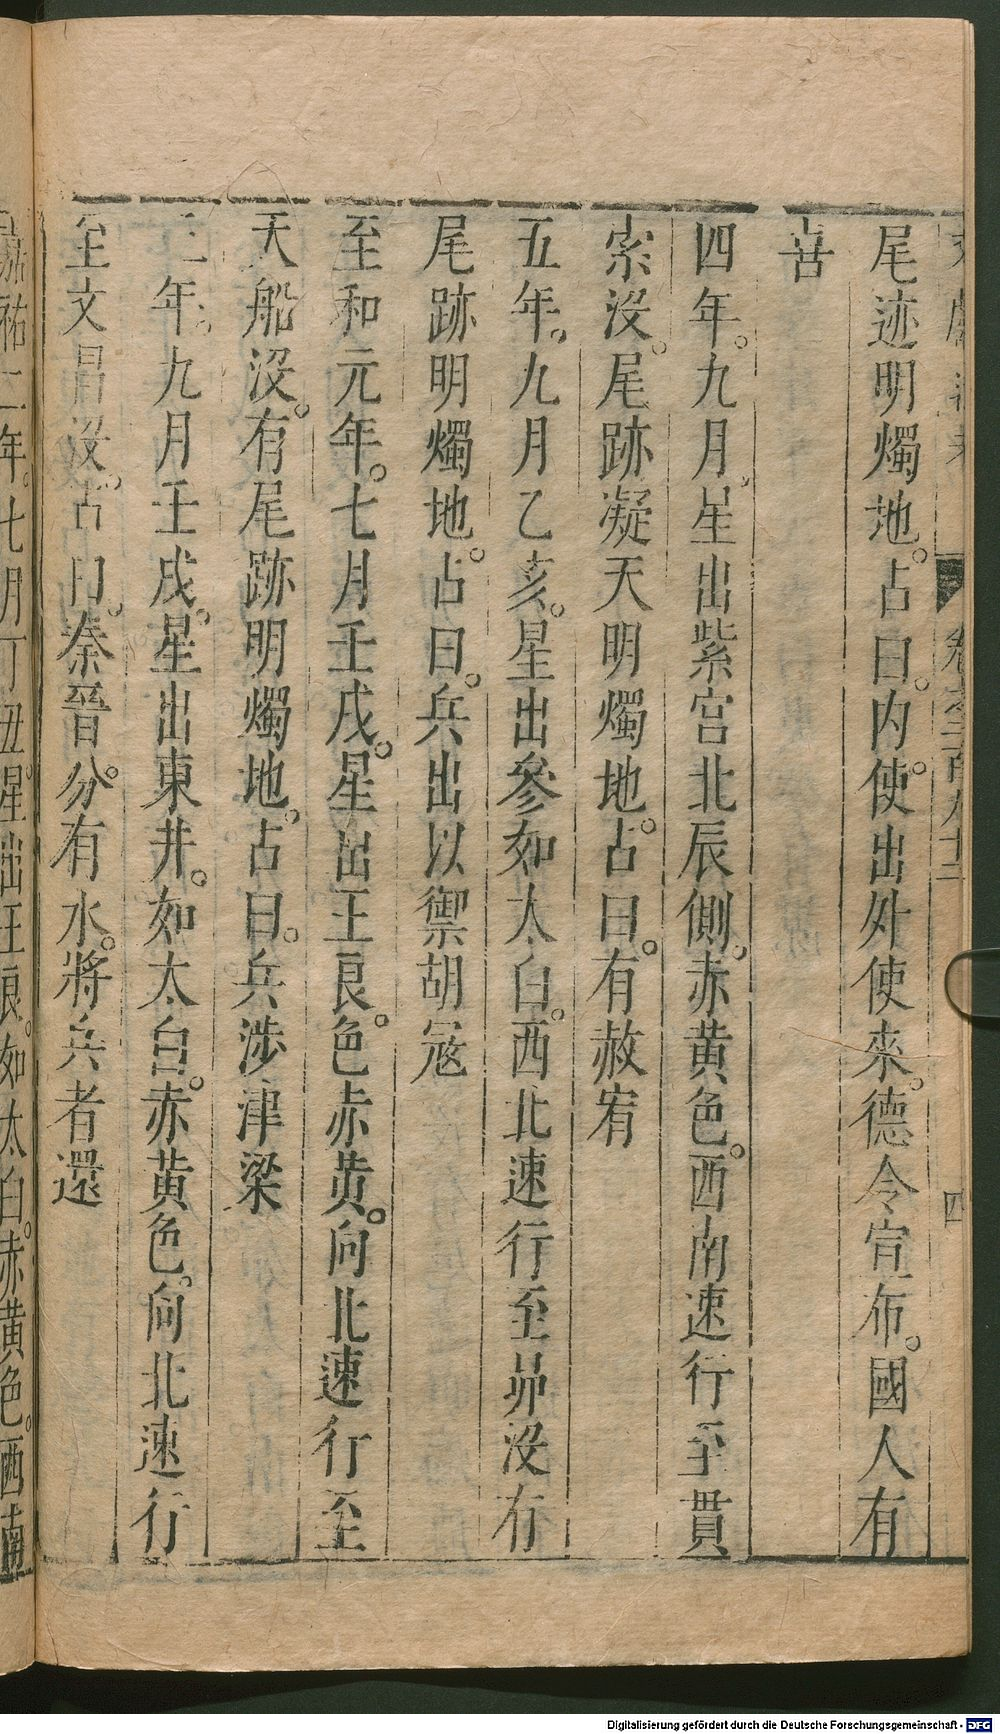 尾迹明燭地。占曰。內使。出外使來。德令宣布。國人有
喜
四年。九月。星出紫宮北辰側。赤黃色。西南速行至貫
索沒。尾跡凝天明燭地。占曰。有赦宥
五年。九月乙亥。星出參如太白。西北速行至昴沒有
尾跡明燭地。占曰。兵出以禦胡寇
至和元年。七月壬戌。星出王良。色赤黃。向北速行至
天船沒。有尾跡明燭地。占曰。兵涉津梁
二年。九月壬戌。星出東井。如太白。赤黃色。向北速行
至文昌沒。占曰。秦晉分。有水。將兵者還
嘉祐二年。七月丁丑。星出王良。如太白。赤黃色。西南
四
Digitalisierung gefördert durch die Deutsche Forschungsgemeinschaft - DFG